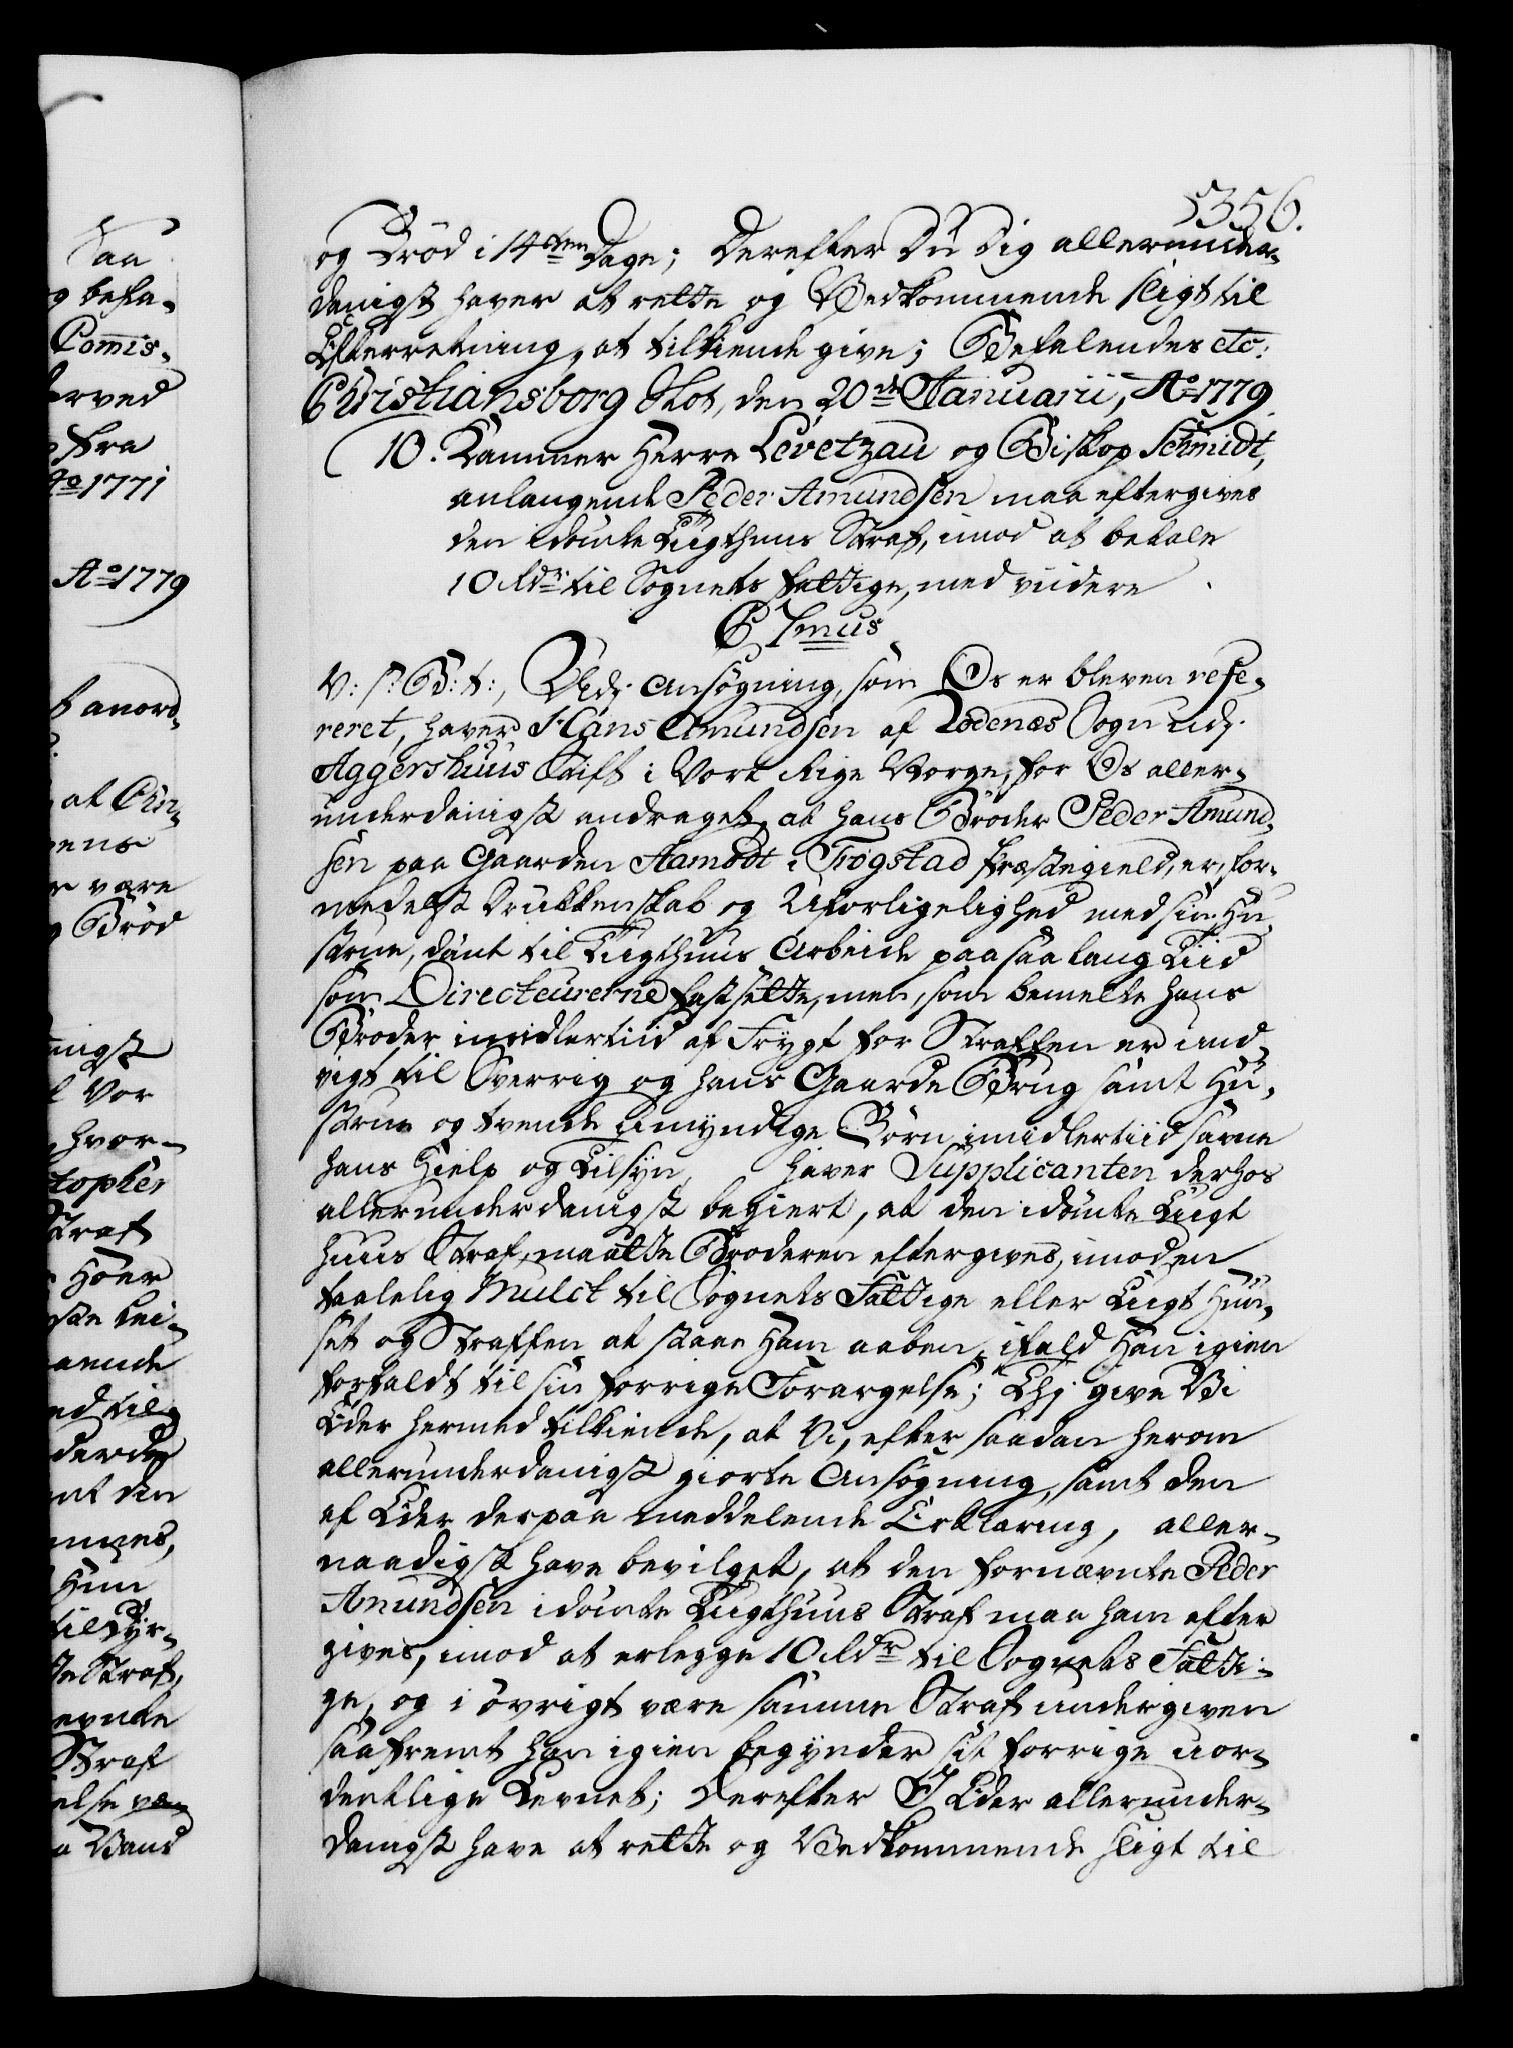 356.
og Brød i 14ten Dage; Derefter Du Dig allerunder-
danigst haver at rette og Vedkommende sligt til
Efterretning, at tilkiende give; Befalendes etc:
Christiansborg Slot, den 20de Januarii, Ao 1779
10. Kammer Herre Levetzau og Biskop Schmidt,
anlangende Peder Amundsen maa eftergives
den idømte Tugthuus Straf, imod at betale
10 Rdr til Sognets fattige, med viidere
C 7mus
V: S: G: T:, Ved Ansøgning, som Os er bleven refe-
reret, haver Hans Amundsen af Rødenæs Sogn udj
Aggershuus Stift i Vort Rige Norge, for Os aller-
underdanigst andraget, at hans Broder Peder Amund-
sen paa Gaarden Aamodt i Trøgstad Præstegield, er, for-
medelst Drukkenskab og Uforligelighed med sin Hu-
strue, dømt til Tugthuus Arbeide paa saa lang Tiid
som Directeurerne fastsætte, men, som bemelte hans
Broder imidlertiid af Frygt for Straffen er und-
vigt til Sverrig og hans Gaarde Brug samt Hu-
strue og tvende umyndige Børn imidlertiid savne
hans Hielp og Tilsyn, haver Supplicanten derhos
allerunderdanigst begiert, at den idømte Tugt
huus Straf, maatte Broderen eftergives, imod en
taalelig Mulct til Sognets Fattige eller Tugt Huu-
set og Straffen at staae Ham aaben, ifald Han igien
forfaldt til sin forrige Forargelse; Thj give Vi
Eder hermed tilkiende, at Vi, efter saadan herom
allerunderdanigst giorte Ansøgning, samt den
af Eder derpaa meddelende Erklæring, aller-
naadigst have bevilget, at den fornævnte Peder
Amundsen idømte Tugthuus Straf maa ham efter
gives, imod at erlegge 10 Rdr til Sognets Fatti-
ge, og i øvrigt være samme Straf undergiven
saafremt han igien begynder sit forrige uor-
dentlige Levnet; Derefter I Eder allerunder-
danigst have at rette og Vedkommende sligt til